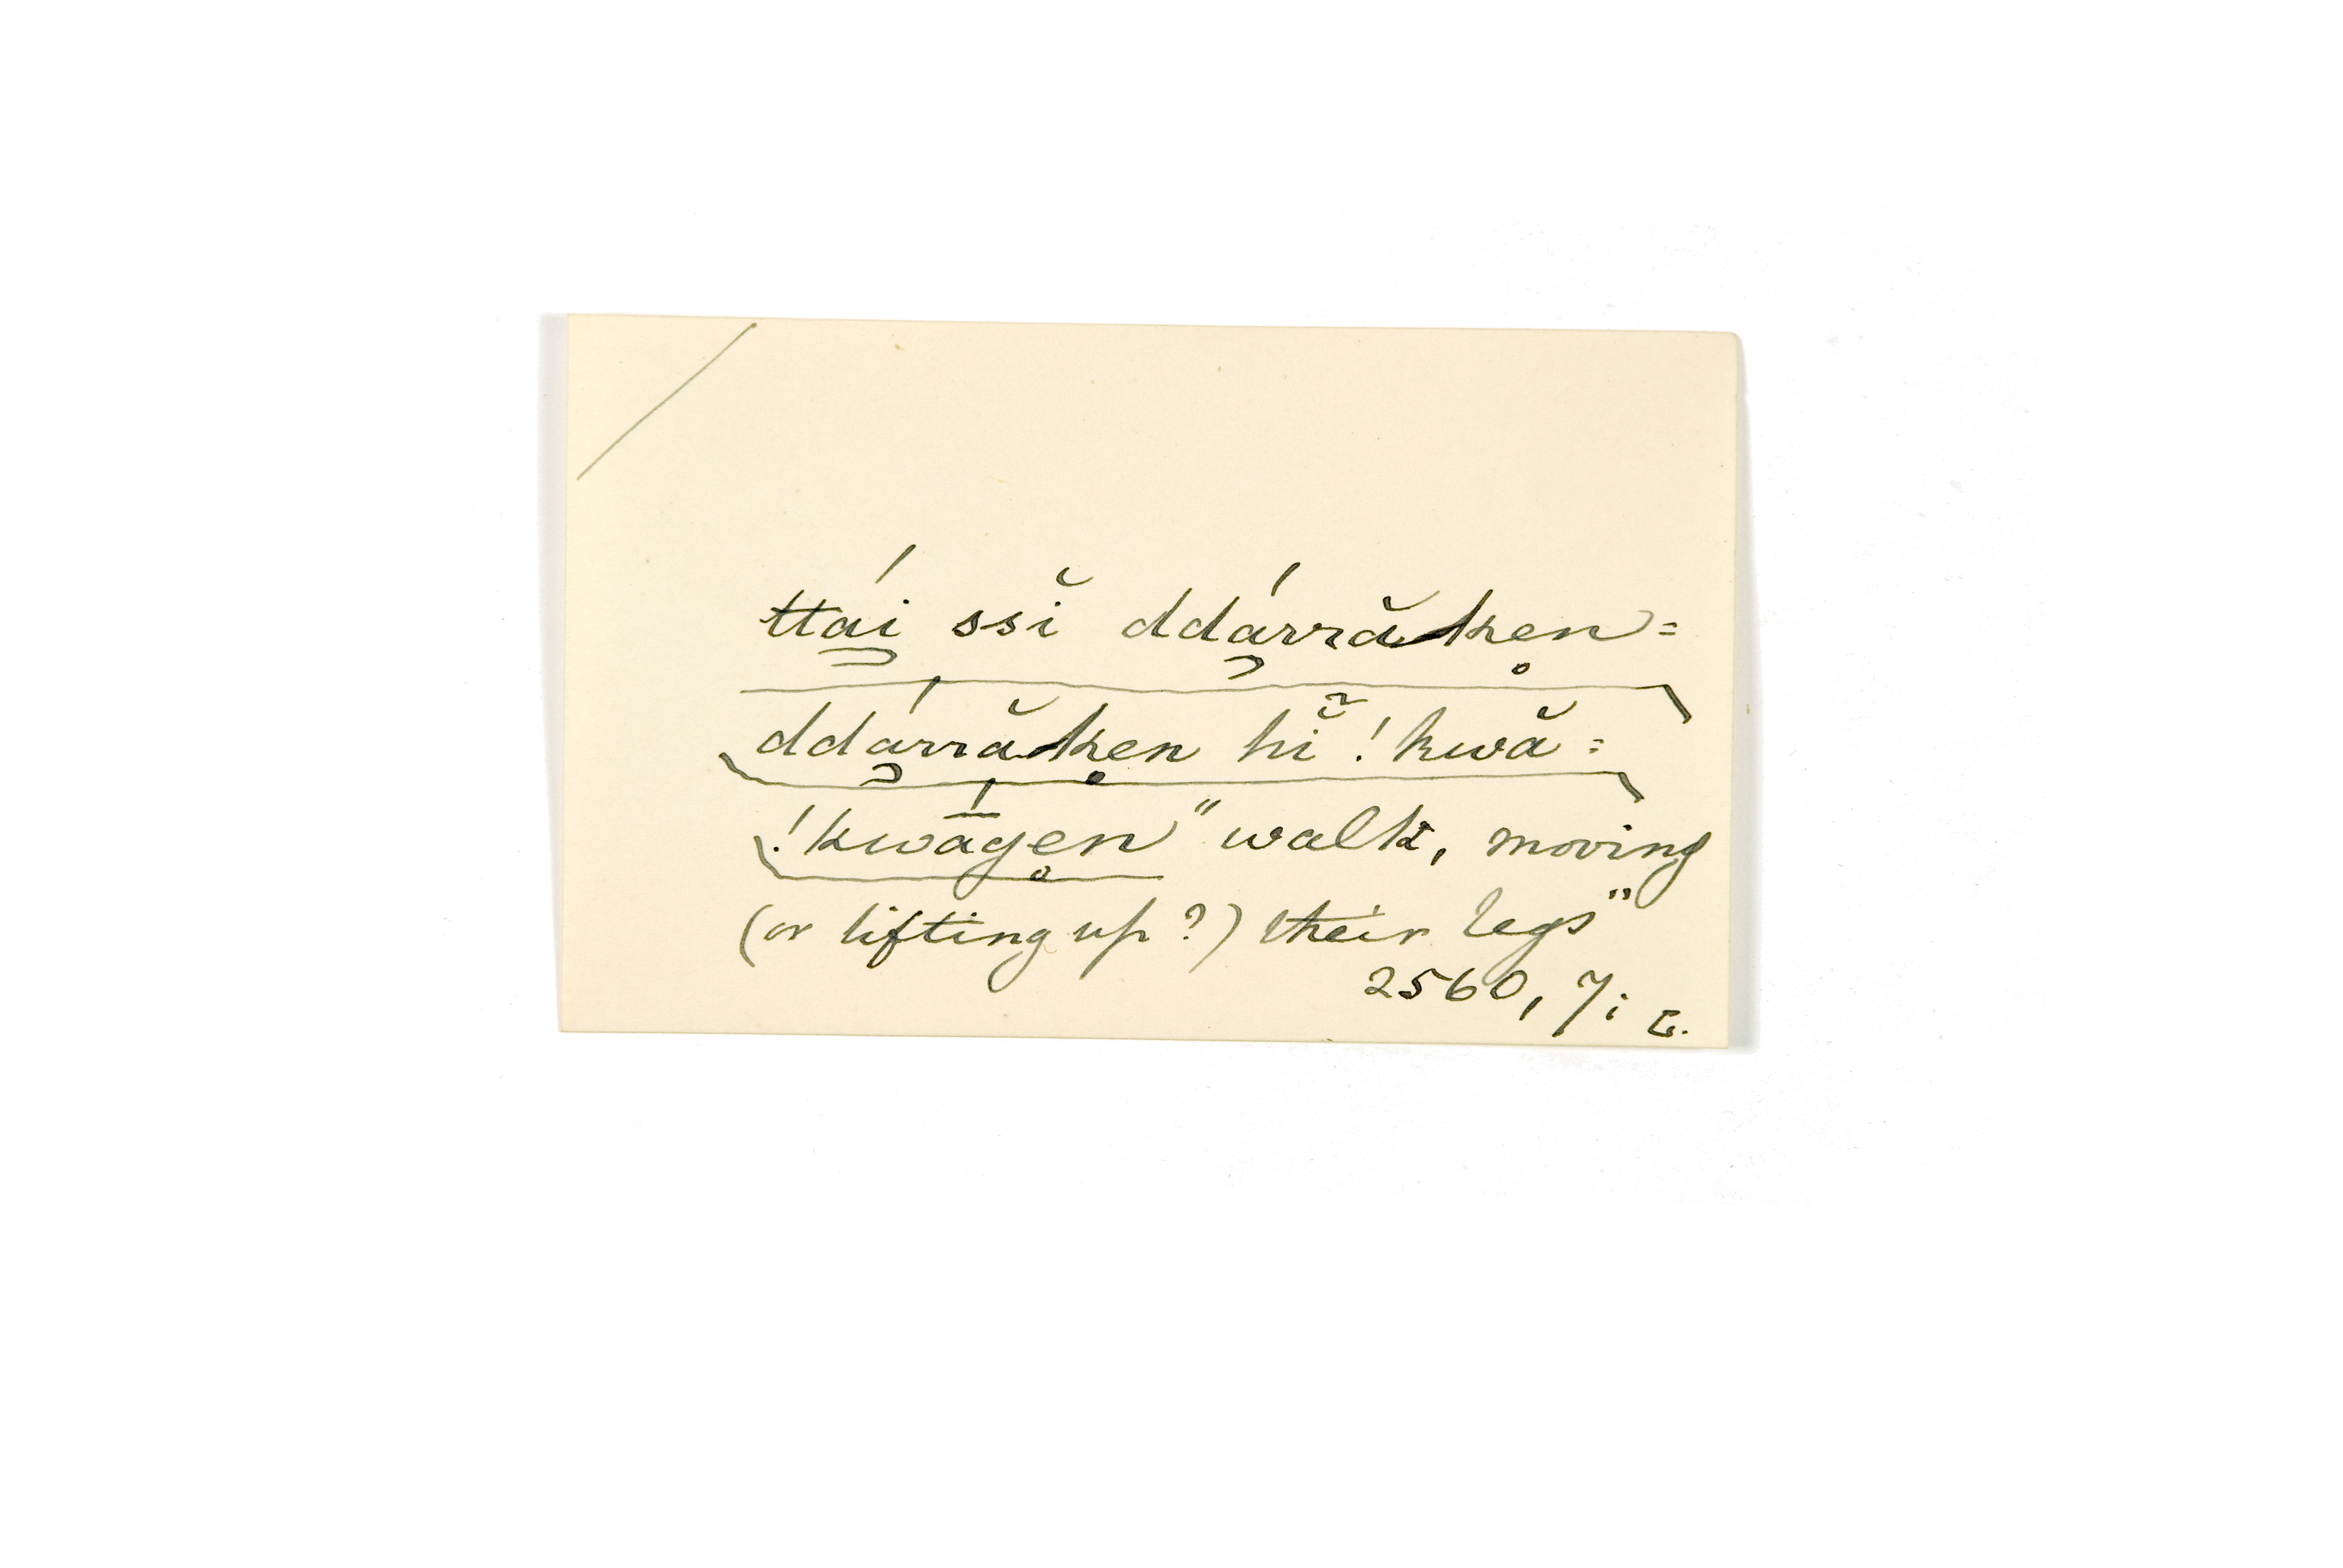 ttái̱ ssĭ ddárrăken̥=
ddárrăken hĭ̃ !kwă=
!kwā́gen̥ "walk, moving
(or lifting up?) their legs"
2560, 7; L.